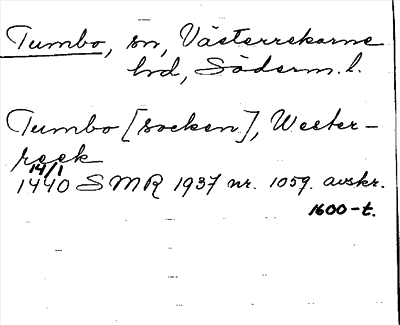 Tumbo, sn, Västerrekarne
hd, Söderm. l.
Tumbo [socken], Wester-
reek
14/1
1440 SMR 1937 nr. 1059. avskr.
1600-t.